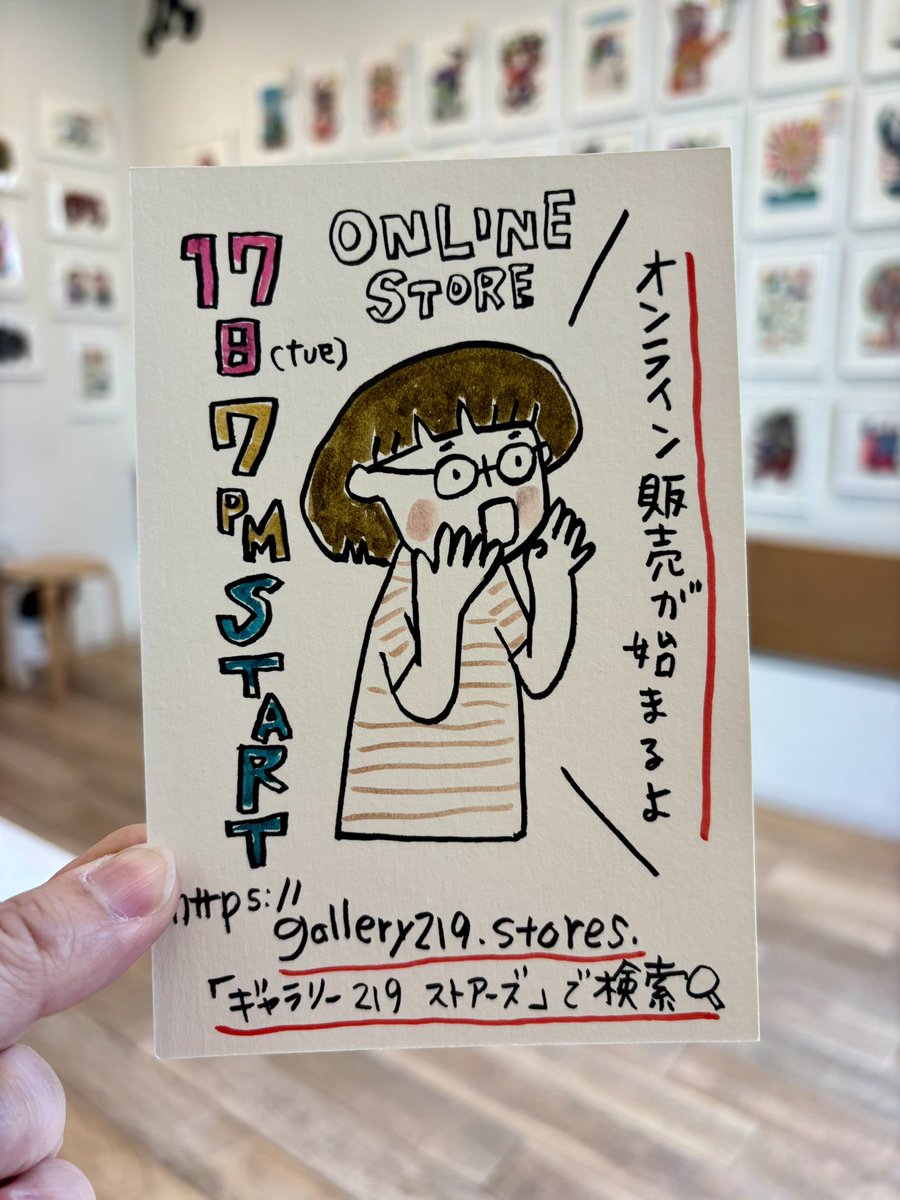 ONLINE
STORE
17
日(tue)
7
PM
START
オンライン販売が始まるよ
https://
gallery219.stores.
「ギャラリー219 ストアーズ」で検索